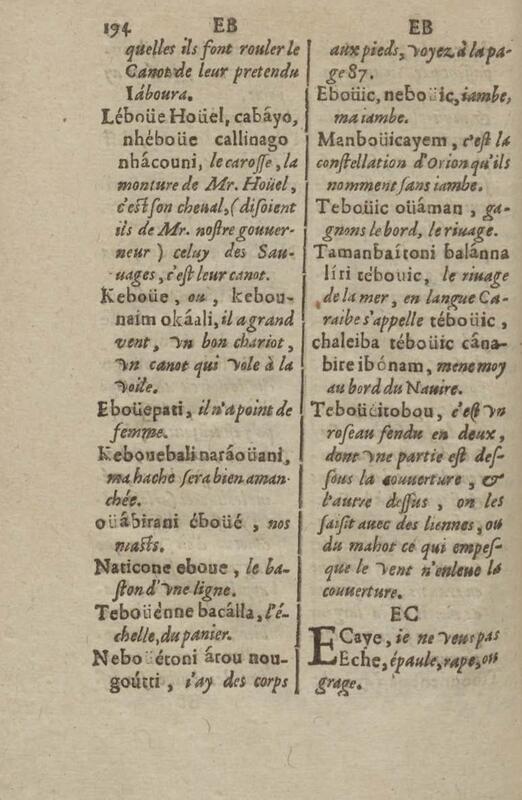 194 EB
quelles ils font rouler le
Canot de leur pretendu
Iáboura.
Léboüe Hoüel, cabáyo,
nhéboüe callinago
nhácouni, le carosse, la
monture de Mr. Hoüel,
c'est son cheual, (disoient
ils de Mr. nostre gouuer-
neur) celuy des Sau-
uages, c'est leur canot.
Keboüe, ou, kebou-
naim okáali, il a grand
vent, vn bon chariot,
vn canot qui vole à la
voile.
Eboüepati, il n'a point de
femme.
Kebouebali naráoüani,
ma hache sera bien aman-
chée.
oüábirani éboüé, nos
masts.
Naticone eboue, le ba-
ston d'vne ligne.
Teboüénne bacálla, l'é-
chelle, du panier.
Neboüétoni átou nou-
goútti, i'ay des corps
EB
aux pieds, voyez à la pa-
ge 87.
Eboüic, neboüic, iambe,
ma iambe.
Manboüicayem, c'est la
constellation d'Orion qu'ils
nomment sans iambe.
Teboüic oüáman, ga-
gnons le bord, le riuage.
Tamanbaítoni balánna
líri tébouic, le riuage
de la mer, en langue Ca-
raibe s'appelle téboüic,
chaleiba téboüic cána-
bire ibónam, mene moy
au bord du Nauire.
Teboüéitobou, c'est vn
roseau fendu en deux,
dont vne partie est des-
sous la couuerture, &
l'autre dessus, on les
saisit auec des liennes, ou
du mahot ce qui empes-
que le vent n'enleue la
couuerture.
EC
ECaye, ie ne veus pas
Eche, épaule, rape, ou
grage.